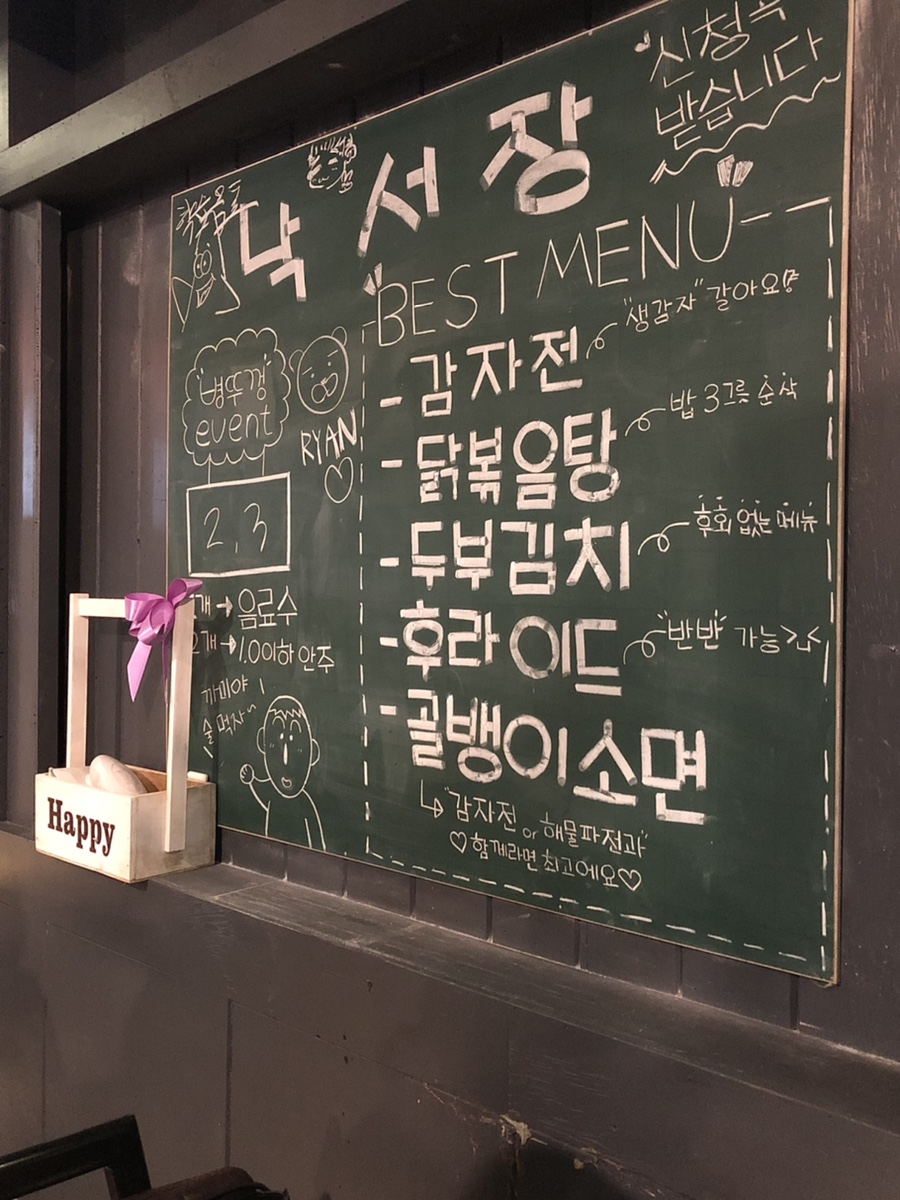 신청곡
받습니다
낙서장
BEST MENU
- 감자전
"생감자" 갈아요!?
- 닭볶음탕
밥 3그릇 순삭
- 두부김치
후회 없는 메뉴
- 후라이드
"반반" 가능>.<
- 골뱅이소면
↳ "감자전 or 해물파전과"
♡함께라면 최고에요♡
병뚜껑
event
RYAN
♡
2, 3
개 → 음료수
개 → 1.0이하 안주
까미야
술먹자~
Happy